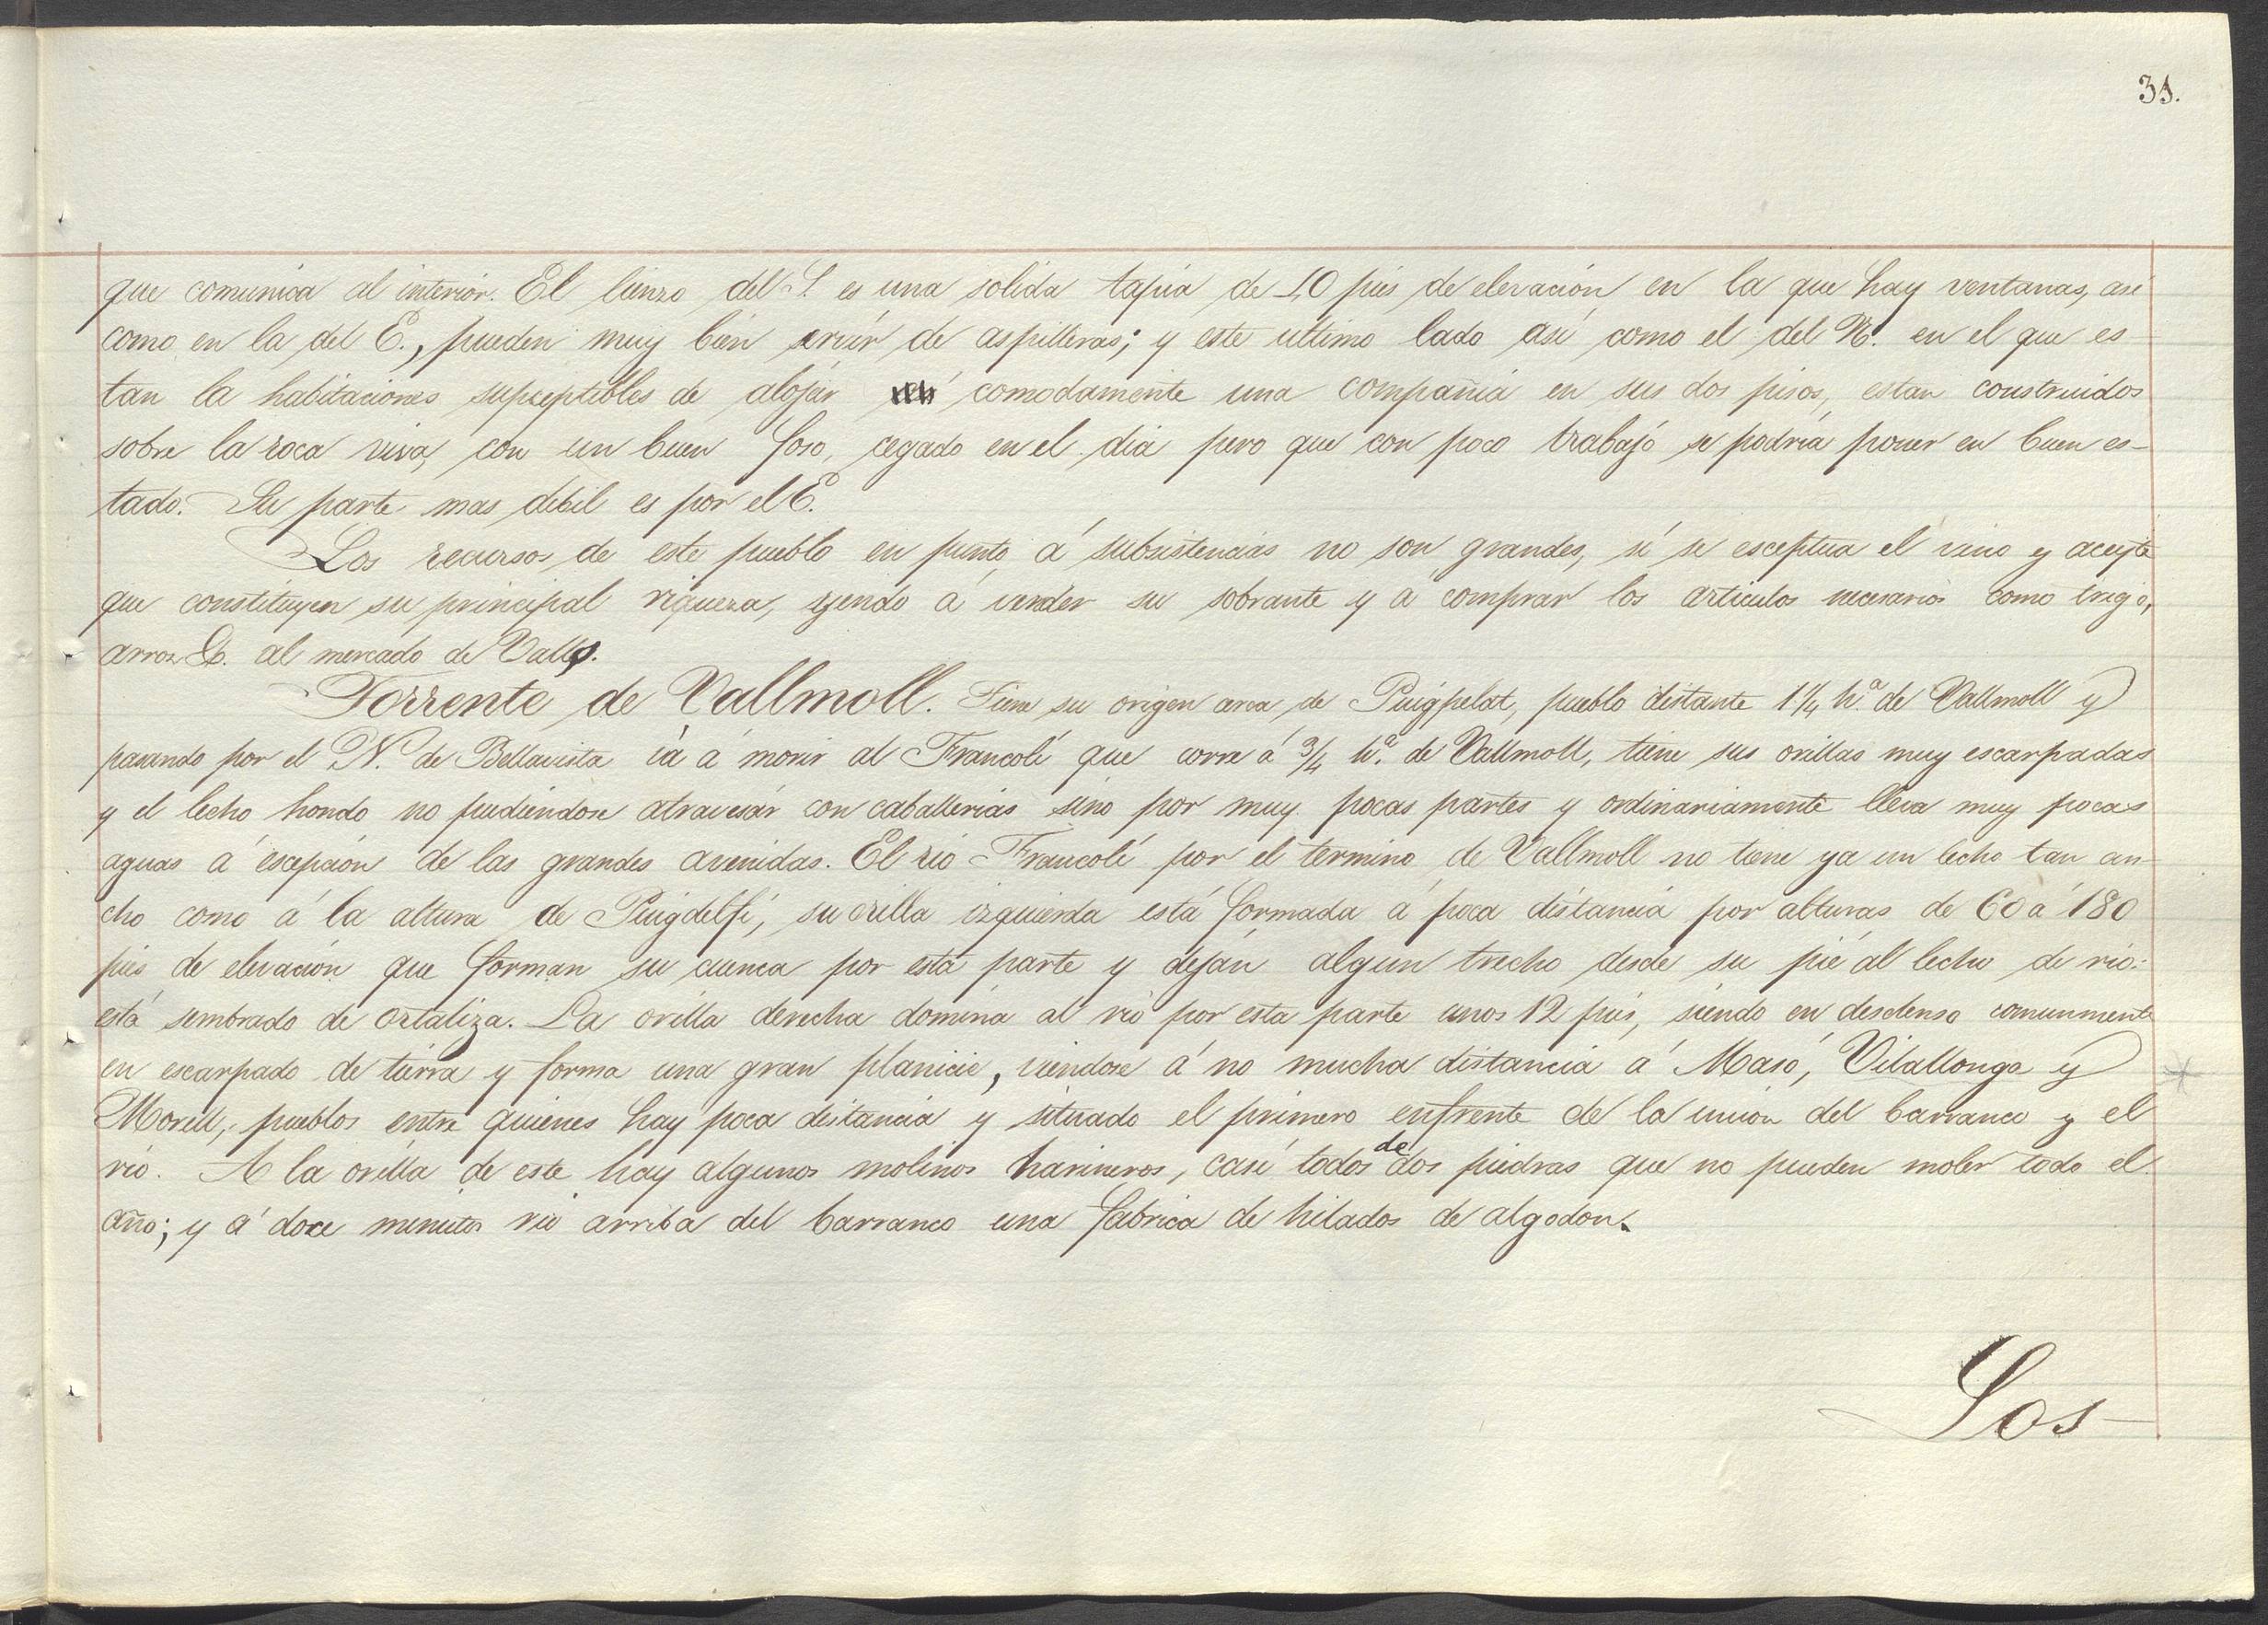 31.
que comunica al interior. El lienzo del S. es una solida tapia de 10 pies de elevación en la que hay ventanas, asi
como en la del E., pueden muy bien servir de aspilleras; y este ultimo lado asi como el del N. en el que es-
tan la habitaciones supceptibles de alojar comodamente una compañia en sus dos pisos, estan construidos
sobre la roca viva, con un buen foso, cegado en el dia pero que con poco trabajo se podria poner en buen es-
tado. Su parte mas debil es por el E.
Los recursos de este pueblo en punto á subsistencias no son grandes, si se esceptua el vino y aceyte
que constituyen su principal riqueza, yendo á vender su sobrante y á comprar los articulos necesarios como trigo,
arroz &. al mercado de Valls.
Torrente de Vallmoll. Tiene su origen cerca de Puigpelat, pueblo distante 1 1/4 h.ª de Vallmoll y
pasando por el N. de Bellavista vá á morir al Francolí que corre á 3/4 h.ª de Vallmoll, tiene sus orillas muy escarpadas
y el lecho hondo no pudiendose atravesar con caballerias sino por muy pocas partes y ordinariamente lleva muy pocas
aguas á escepción de las grandes avenidas. El rio Francolí por el termino de Vallmoll no tiene ya un lecho tan an-
cho como á la altura de Puigdelfi, su orilla izquierda está formada á poca distancia por alturas de 60 á 180
pies de elevación que forman su cuenca por esta parte y dejan algun trecho desde su pié al lecho de rio:
está sembrado de ortaliza. La orilla derecha domina al rio por esta parte unos 12 pies, siendo en desdenso comunmente
en escarpado de tierra y forma una gran planicie, viendose á no mucha distancia á Masó, Vilallonga y
Morell, pueblos entre quienes hay poca distancia y situado el primero enfrente de la union del barranco y el
rio. A la orilla de este hay algunos molinos harineros, casi todos de dos piedras que no pueden moler todo el
año; y á doce minutos rio arriba del barranco una fabrica de hilados de algodon.
Los